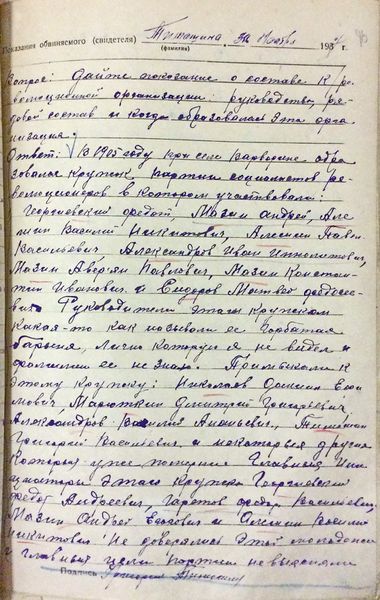 Показания обвиняемого (свидетеля) Тимошина 30 Ноября 193 г.
(фамилия)
Вопрос: Дайте показание о составе к/ре
волюционной организации: руководство, ря
довой состав и когда образовалась эта орга
низация.
Ответ: В 1905 году при селе образо
вался кружок партии социалистов ре
волюционеров в котором участвовали:
Георгиевский Федот, Мазин Андрей, Але
шин Василий Никитович, Алешин Павел
Васильевич, Александров Иван Ипполитович,
Мазин Аверьян Павлович, Мазин Констан
тин Иванович и Сидоров Матвей Федосее
вич. Руководителем этого кружком
какая-то как называли ее Горбатая
барыня, лично которую я не видел и
фамилии ее не знаю. Примыкали к
этому кружку: Николаев
мович, Марюткин Дмитрий Григорьевич,
Александров Василий Ананьевич, Тимошин
Григорий Васильевич, и некоторые другие
которые уже померли. Главные ини
циаторы этого кружка Георгиевский
Федот Андреевич, Федор Васильевич,
Мазин Андрей и Алешин Василий
Никитович. Не доверялись этой молодежи
и главные цели партии не выясняли
Подпись Григорий Тимошин